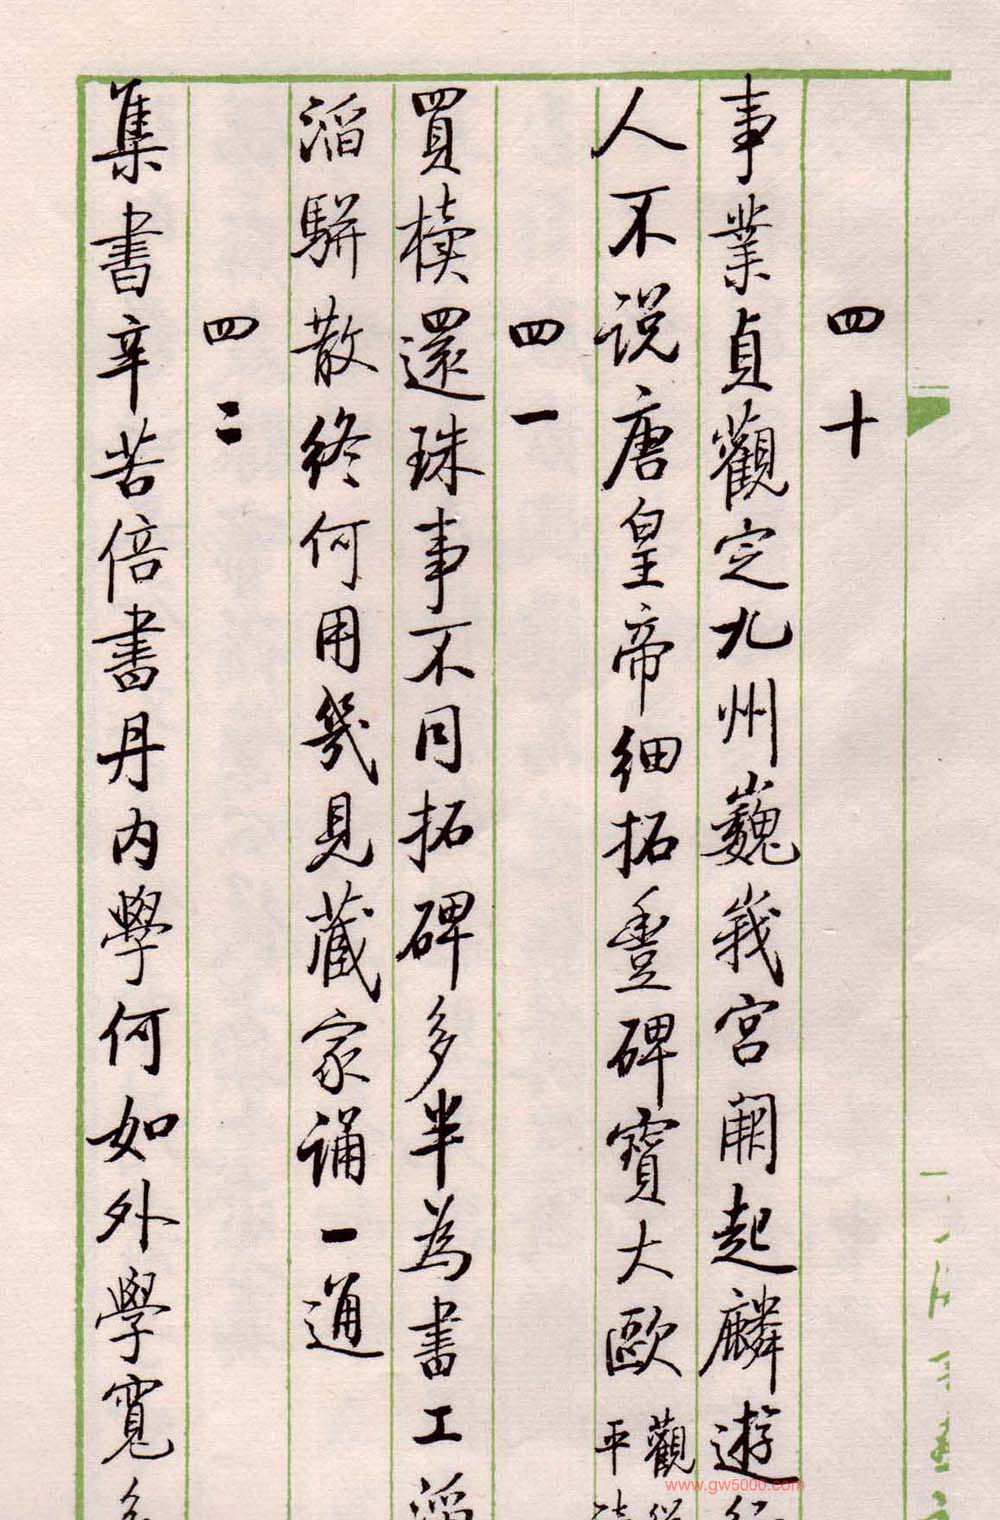 四十
事業貞觀定九州巍峩宮闕起麟遊
人不说唐皇帝细拓豐碑寶大歐
觀
平
四一
買櫝還珠事不同拓碑多半為書工滔
滔駢散終何用幾見藏家誦一通
四二
集書辛苦倍書丹内學何如外學寬多
www.gw5000.com